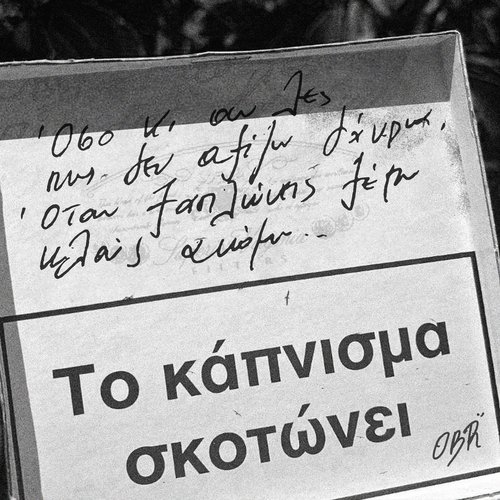 Όσο κι αν λες
πως δεν αξίζω δάκρυα,
Όταν ξαπλώνεις ξέρω
κλαίς ακόμα...
FILTERS
Το κάπνισμα
σκοτώνει